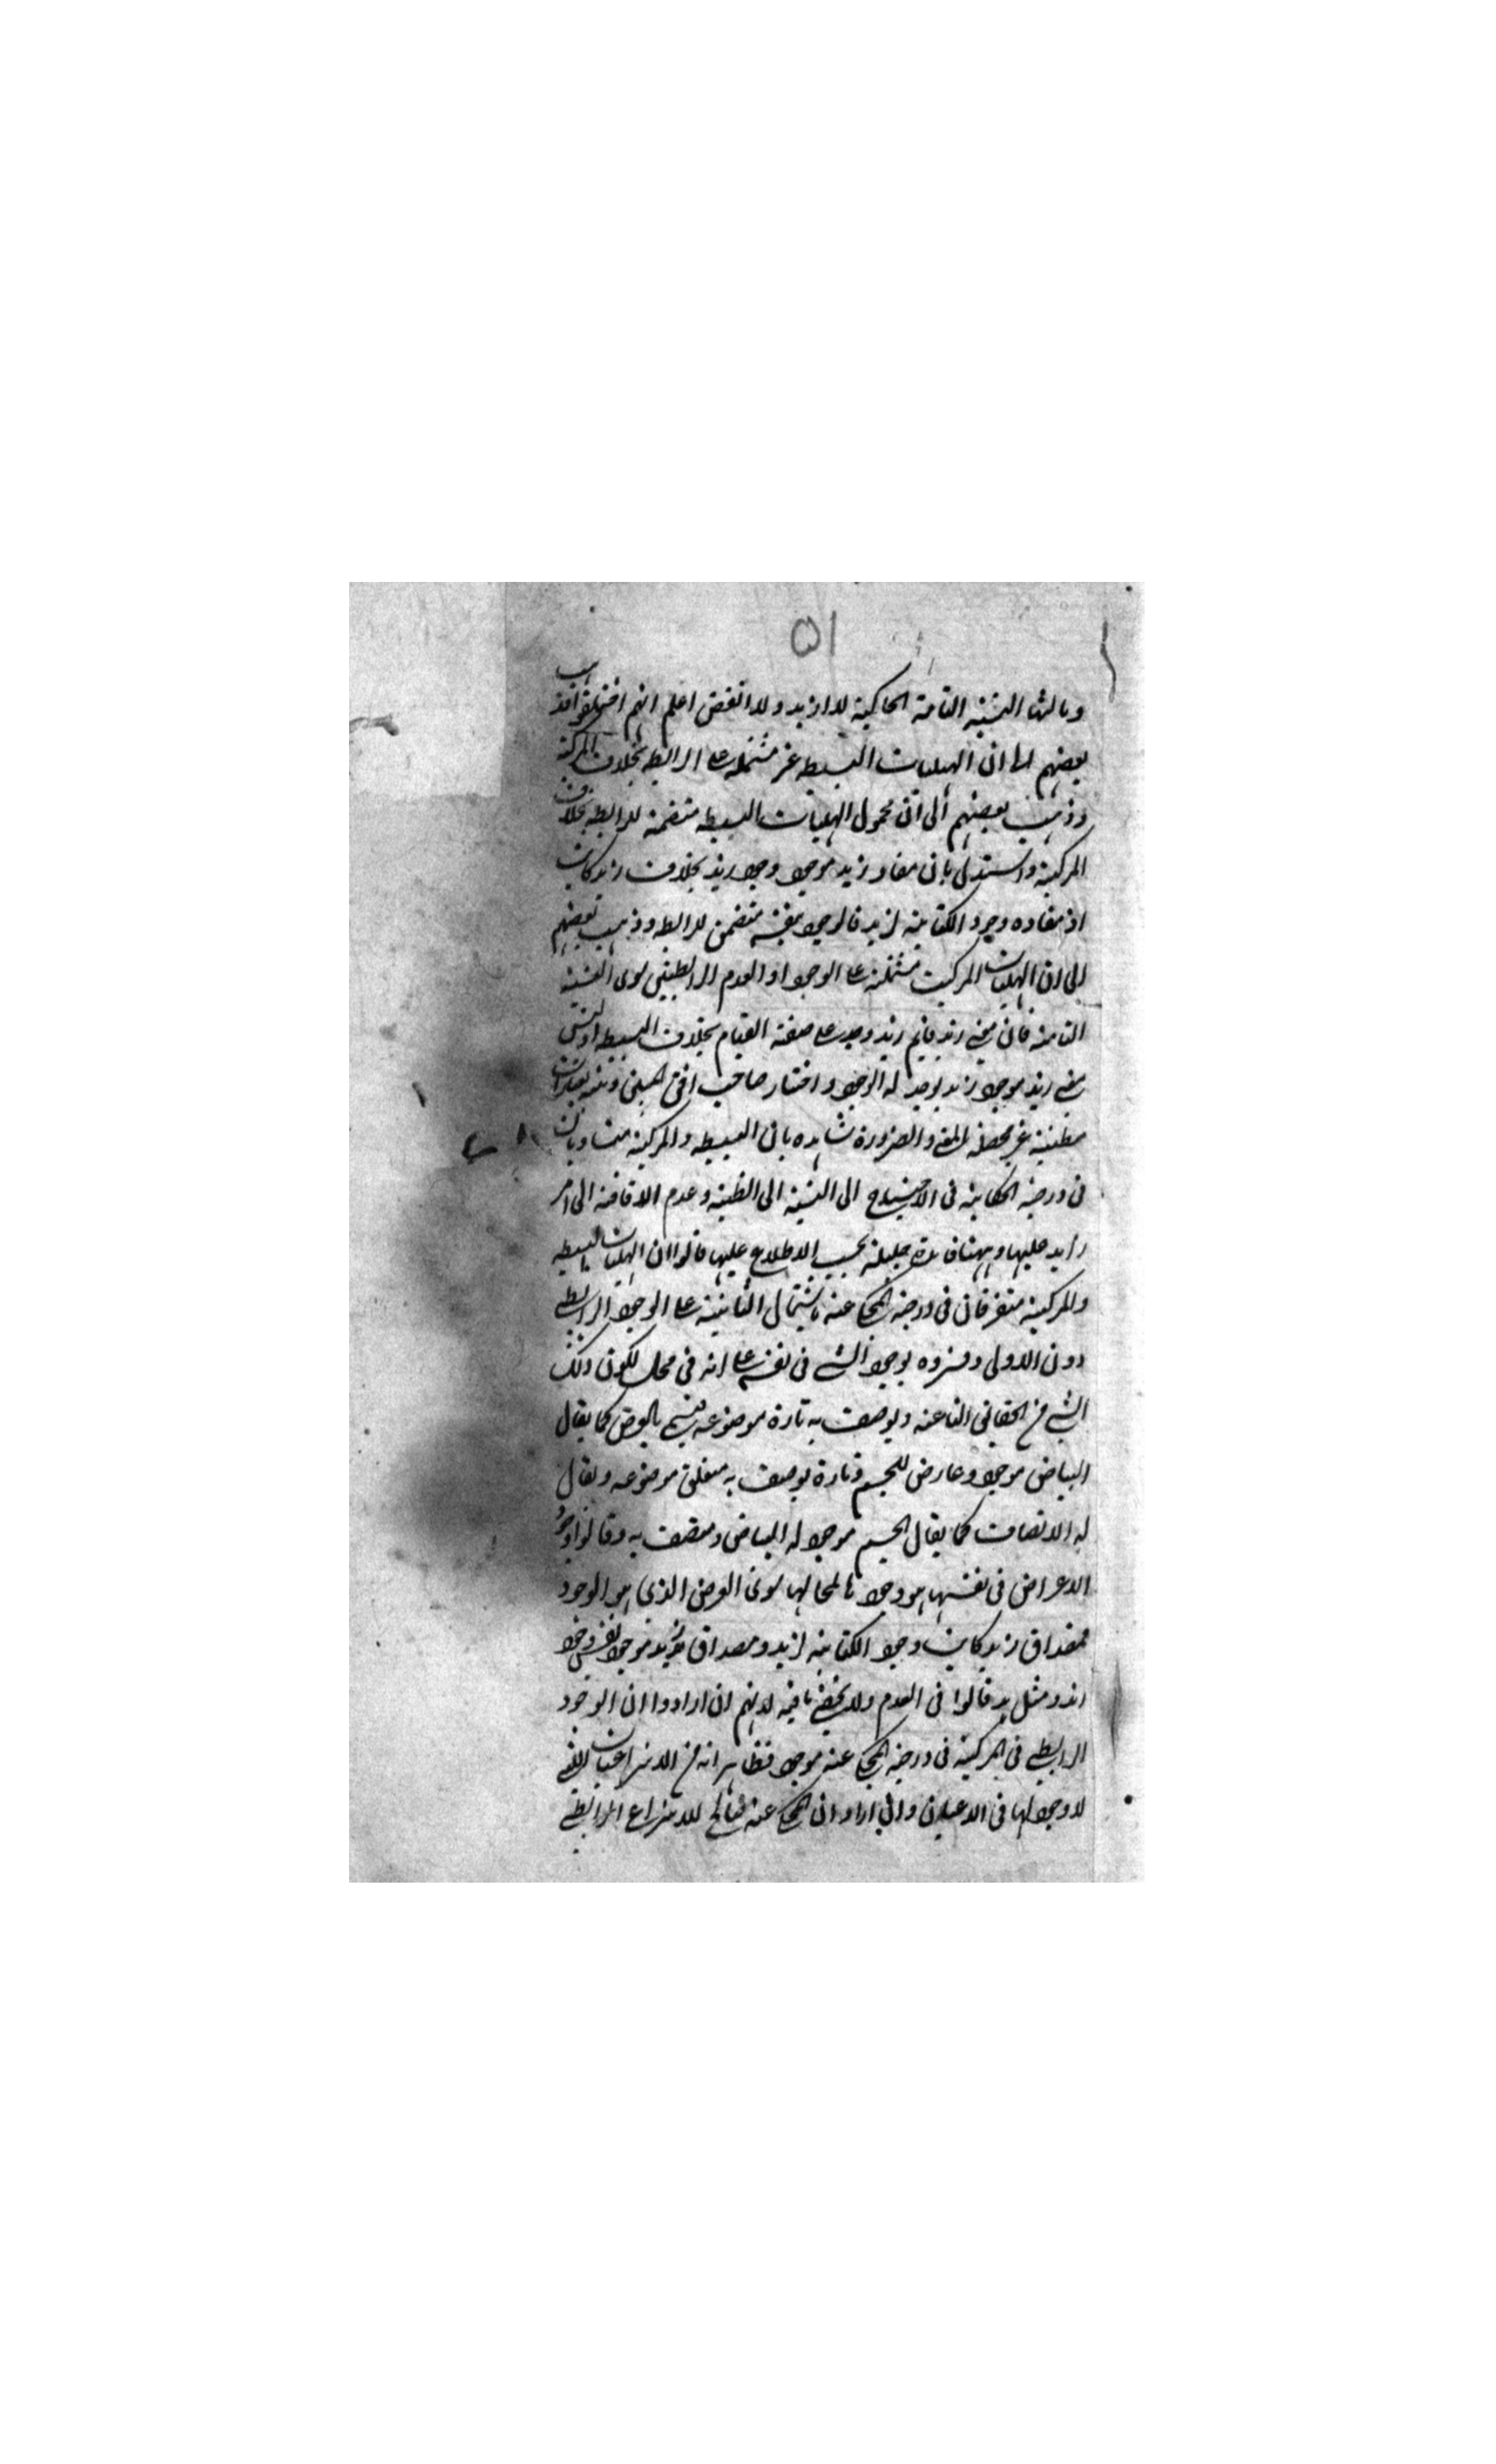 ٥١
وثالثها النسبة التامة الحاكية لا ازيد ولا انقص اعلم انهم اختلفوا فذهب
بعضهم الى ان الهليات البسيطة غير مشتملة على الرابطة بخلاف المركبة
وذهب بعضهم الى ان محمول الهليات البسيطة متضمنة للرابطة بخلاف
المركبة واستدل بان مفاد زيد موجود وجود زيد بخلاف زيد كاتب
اذ مفاده وجود الكتابة لزيد فالوجود بنفسه متضمن للرابطة وذهب بعضهم
الى ان الهليات المركبت مشتملة على الوجود او العدم الرابطيين سوى النسبة
التامة فان معنى زيد قايم زيد وجد على صفة القيام بخلاف البسيطة اذ ليس
معنى زيد موجود زيد يوجد له الوجود واختار صاحب افق المبين وبينه بعبارات
مطنبة غير محصلة المعنى والضرورة شاهدة بان البسيطة والمركبة متساويان
فى درجة الحكاية فى الاحتياج الى النسبة وعدم الافاقة الى امر
زايد عليها وههنا فائدة جليلة يجب الاطلاع عليها قالوا ان الهليات البسيطة
والمركبة متفرقان فى درجة المحكى عنه باشتمال الثانية على الوجود الرابطى
دون الاولى وفسروه بوجود الشى فى نفسه على انه فى محل لكون ذلك
الشى من الحقائق الناعتة ويوصف به تارة موضوعه فيسمى بالعرض كما يقال
البياض موجود وعارض للجسم وتارة يوصف به متعلق موضوعه ويقال
له الاتصاف كما يقال الجسم موجود له البياض ومتصف به وقالوا وجود
الاعراض فى نفسها هو وجودها لمحالها سوى العرض الذى هو الوجود
فمصداق زيد كاتب وجود الكتابة لزيد ومصداق زيد موجود نفس وجود
زيد ومثل به قالوا فى العدم ولا يخفى ما فيه لانهم ان ارادوا ان الوجود
الرابطى فى المركبة فى درجة المحكى عنه موجود فظاهر انه من الانتزاعيات التى
لا وجود لها فى الاعيان وان اراد ان المحكى عنه صالح للانتزاع الرابطى